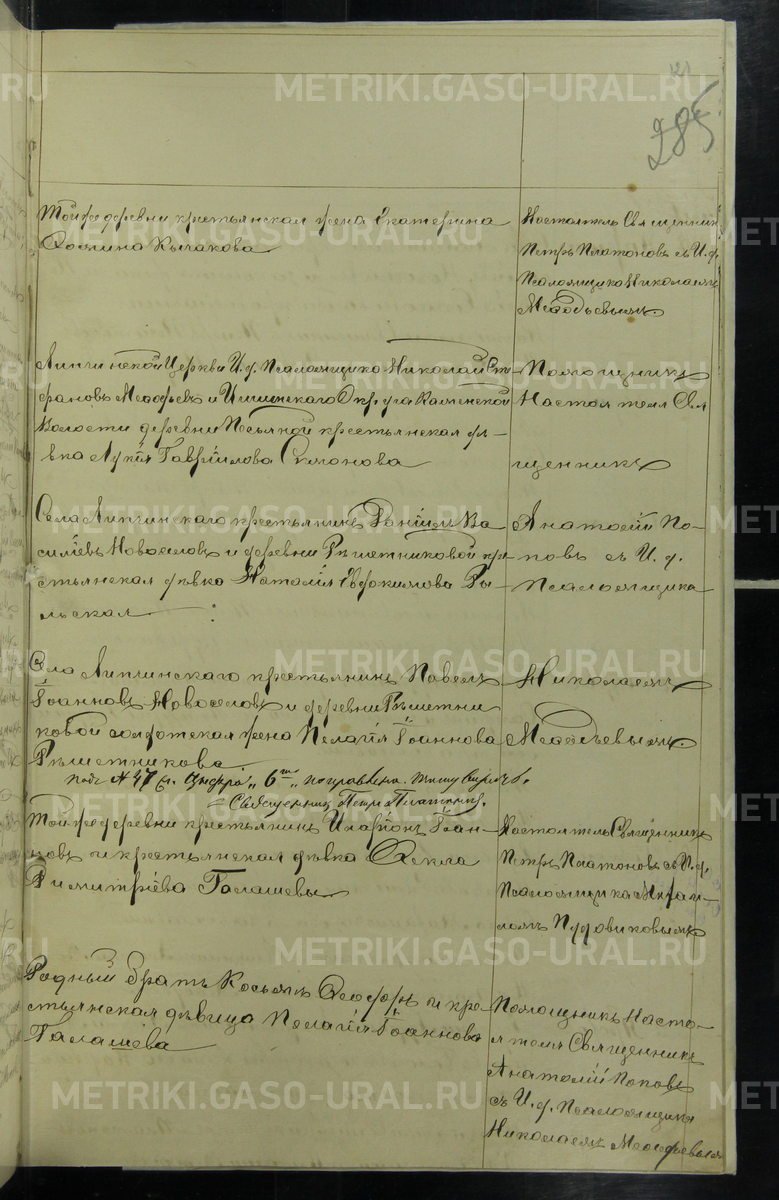 121
285
Тойже деревни крестьянская жена Екатерина
Фомина Кычакова
Настоятель Священник
Петръ Платоновъ съ И. д.
Псаломщика Николаемъ
Меѳодьевымъ
Липчинской Церкви И. д. Псаломщика Николай Сте-
фановъ Меѳодьевъ и Ишимскаго Округа Каменской
Волости деревни крестьянская дѣ-
вка Лукія Гавріилова Симонова
Помощникъ
Настоятеля Свя
щенникъ
Села Липчинскаго крестьянинъ Даніилъ Ва-
силіевъ Новоселовъ и деревни Рѣшетниковой кре-
стьянская дѣвка Наталія Евфокимова Ры-
льская
Анатолій По-
повъ съ И. д.
Псаломщика
Села Липчинскаго крестьянинъ Павелъ
Іоанновъ Новоселовъ и деревни Рѣшетни
ковой солдатская жена Пелагія Іоаннова
Рѣшетникова
Николаемъ
Меѳодьевымъ.
подъ № 47 цыфра „6ть„ поправлена.
Священникъ Петръ Платоновъ.
Тойже деревни крестьянинъ Иларіонъ Іоан-
новъ и крестьянская дѣвка Ѳекла
Димитріева Галашевы
Настоятель Священникъ
Петръ Платоновъ съ И. д.
Псаломщика Михаи-
ломъ Пудовиковымъ
Родный братъ Косьмы и кре-
стьянская дѣвица Пелагія Іоаннова
Галашева
Помощникъ Насто-
ятеля Священникъ
Анатолій Поповъ
съ И. д. Псаломщика
Николаемъ Меѳодьевымъ
METRIKI.GASO-URAL.RU